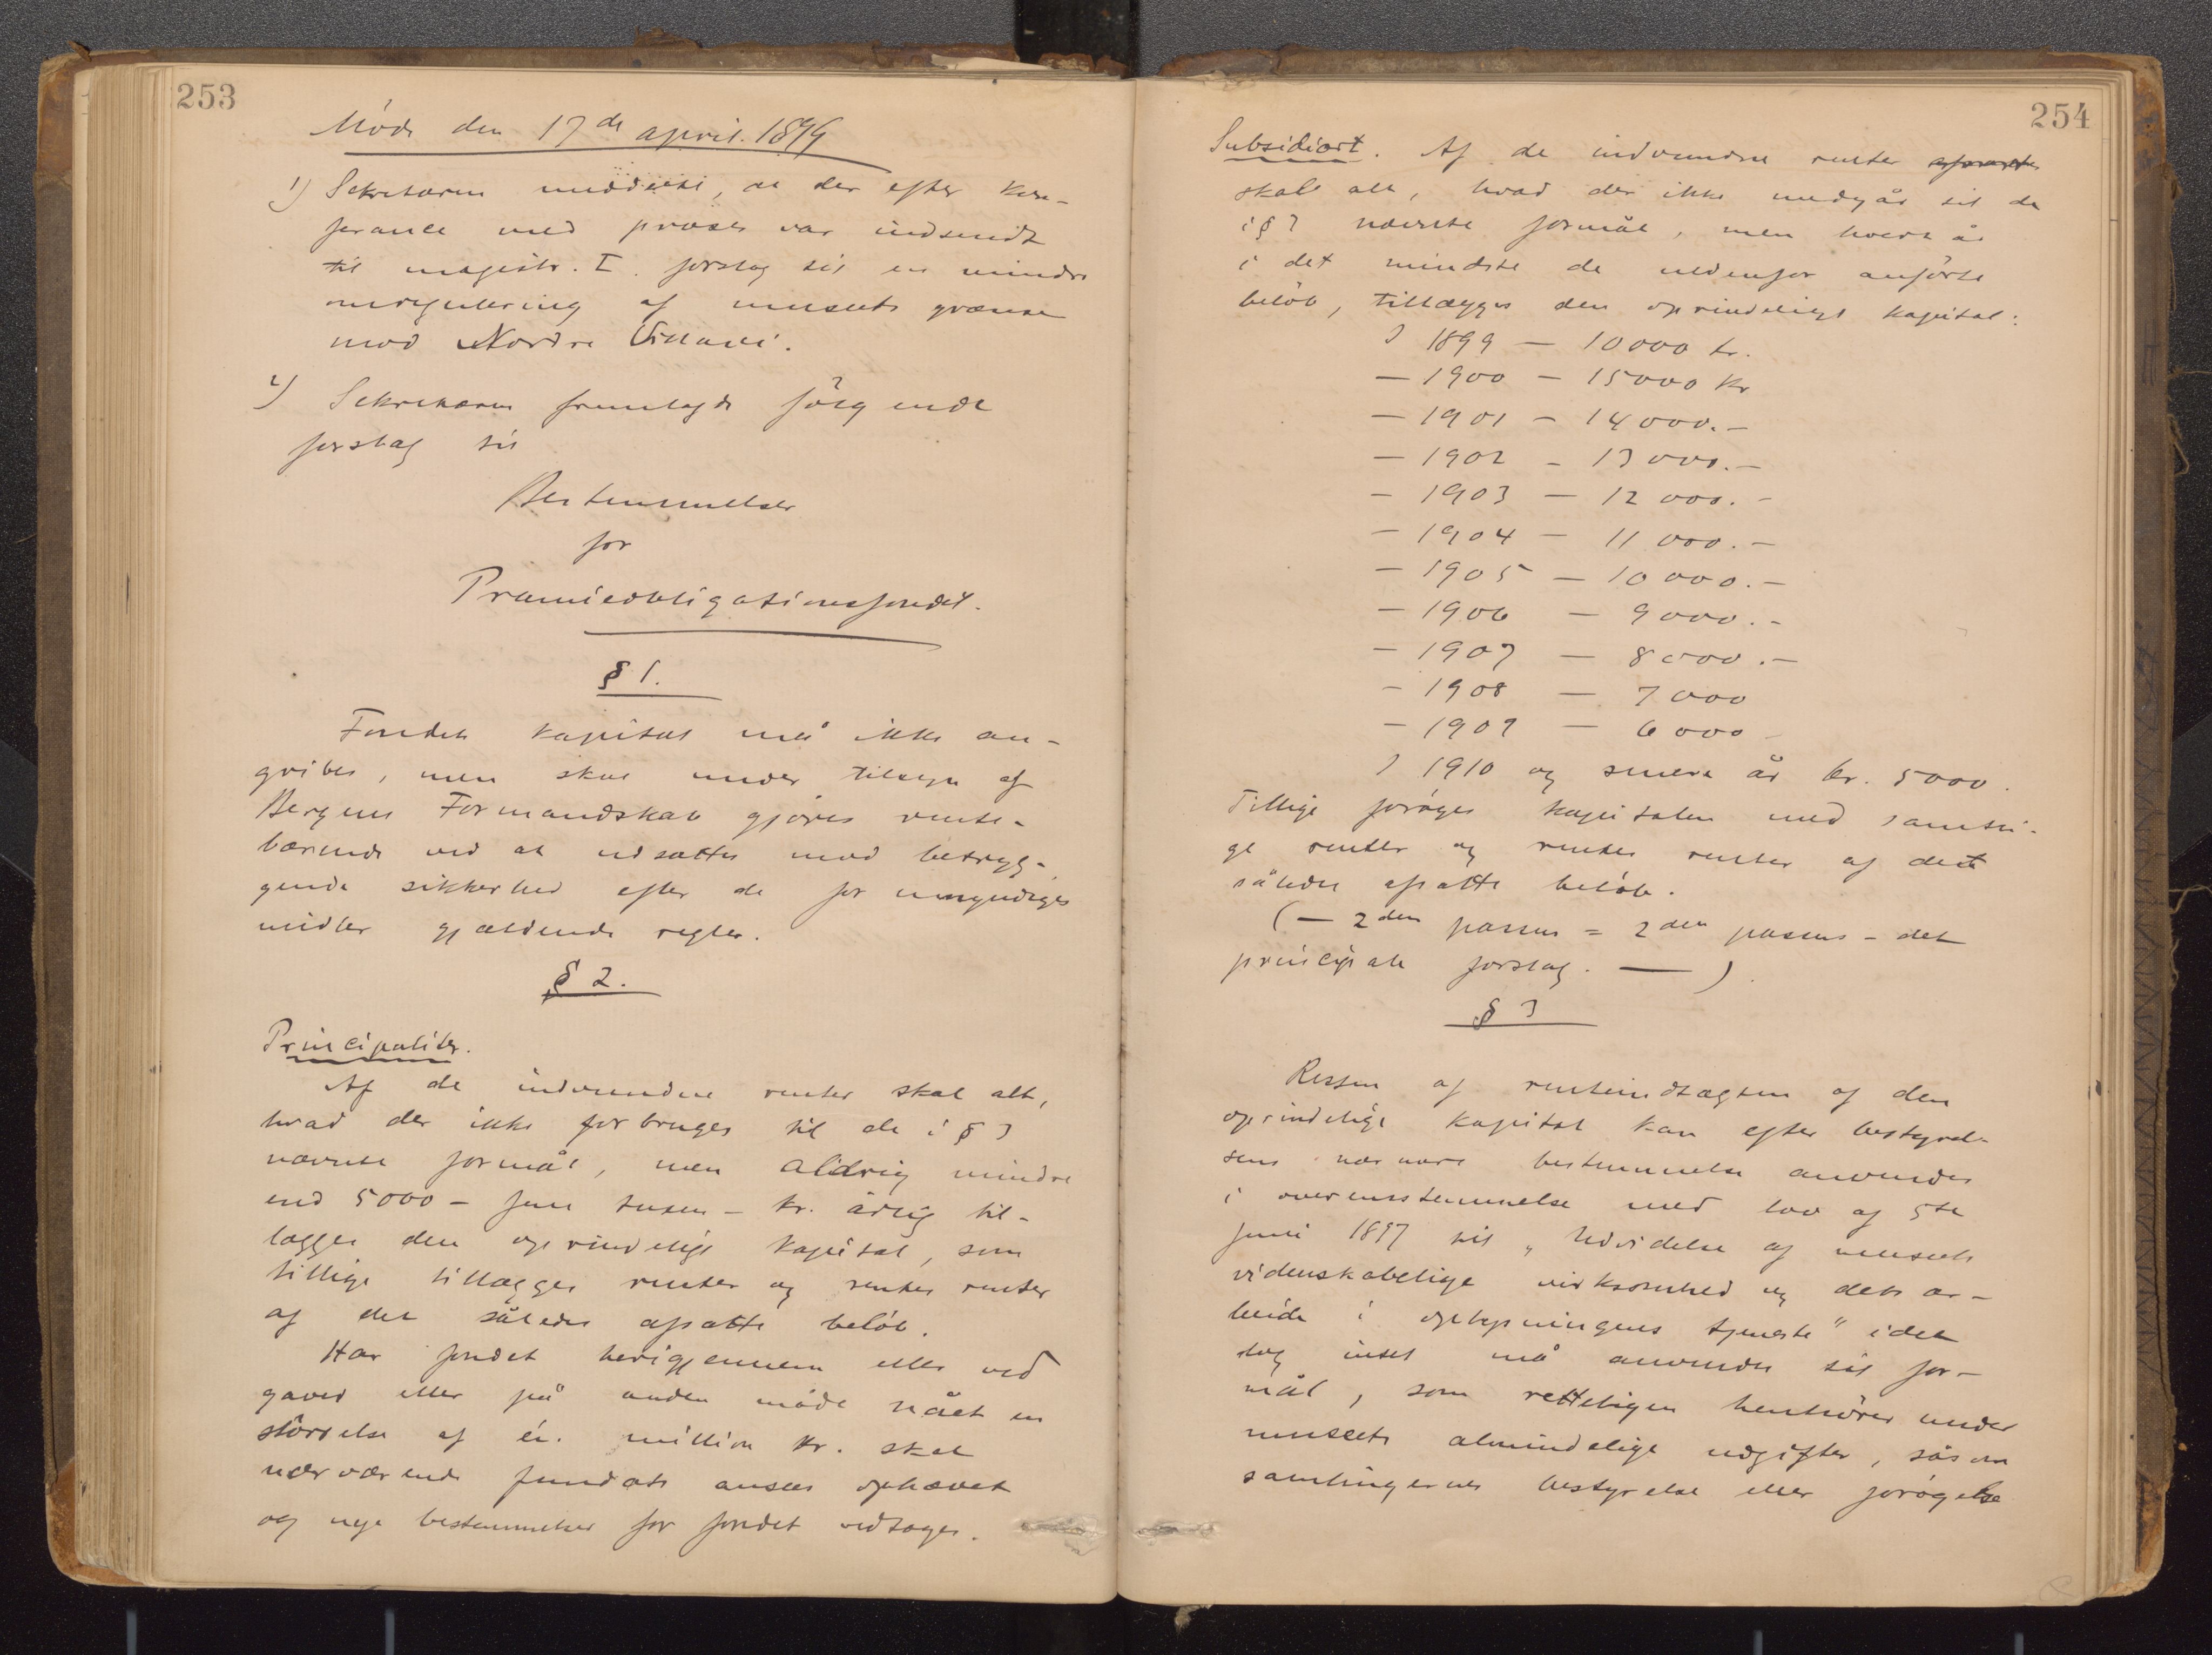 253
Møde den 17de april. 1899
1) Sekretæren meddelte, at der efter kon-
ferance med præses var indsendt
til magistr. I. forslag til en mindre
omregulering af museets grænse
mod Nordre Villavei.
2) Sekretæren fremlagde følgende
forslag til
Bestemmelser
for
Præmieobligationsfondet.
§ 1.
Fondets kapital må ikke an-
gribes, men skal under tilsyn af
Bergens Formandskab gjøres rente-
bærende ved at udsættes mod betryg-
gende sikkerhed efter de for umyndiges
midler gjældende regler.
§ 2.
Principaliter.
Af de indvundne renter skal alt,
hvad der ikke forbruges til de i § 3
nævnte formål, men aldrig mindre
end 5000 – fem tusen – kr. årlig til-
lægges den oprindelige kapital, som
tillige tillægges renter og renters renter
af det således afsatte beløb.
Har fondet herigjennem eller ved
gaver eller på anden måde nået en
størrelse af én million kr. skal
nærværende fundats ansees ophævet
og nye bestemmelser for fondet vedtages.
254
Subsidiært. Af de indvundne renter
skal alt, hvad der ikke medgår til de
i § 3 nævnte formål, men hvert år
i det mindste de nedenfor anførte
beløb, tillægges den oprindelige kapital:
I 1899 — 10000 kr.
— 1900 — 15000 kr
— 1901 — 14000. —
— 1902 — 13000. —
— 1903 — 12000. —
— 1904 — 11000. —
— 1905 — 10000. —
— 1906 — 9000. —
— 1907 — 8000. —
— 1908 — 7000
— 1909 — 6000 —
I 1910 og senere år kr. 5000.
Tillige forøges kapitalen med samtli-
ge renter og renters renter af det
således afsatte beløb.
(— 2den passus = 2den passus – det
principale forslag. —)
§ 3
Resten af renteindtægten af den
oprindelige kapital kan efter bestyrel-
sens nærmere bestemmelse anvendes
i overensstemmelse med lov af 5te
juni 1897 til „Udvidelse af museets
videnskabelige virksomhed og dets ar-
beide i oplysningens tjeneste" idet
dog intet må anvendes til for-
mål, som retteligen henhører under
museets almindelige udgifter, såsom
samlingernes bestyrelse eller forøgelse